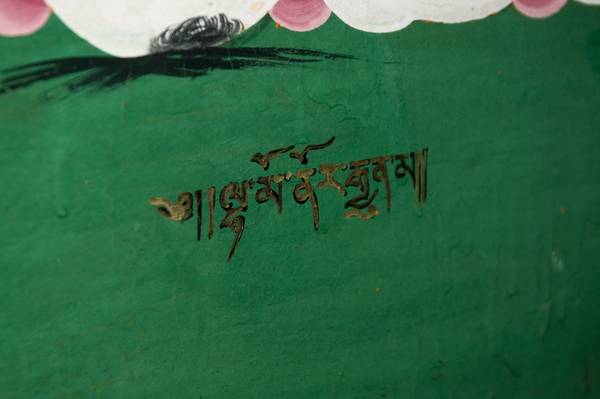 ༄།།ལྷ་མོ་ནོར་རྒྱུན་མ།།